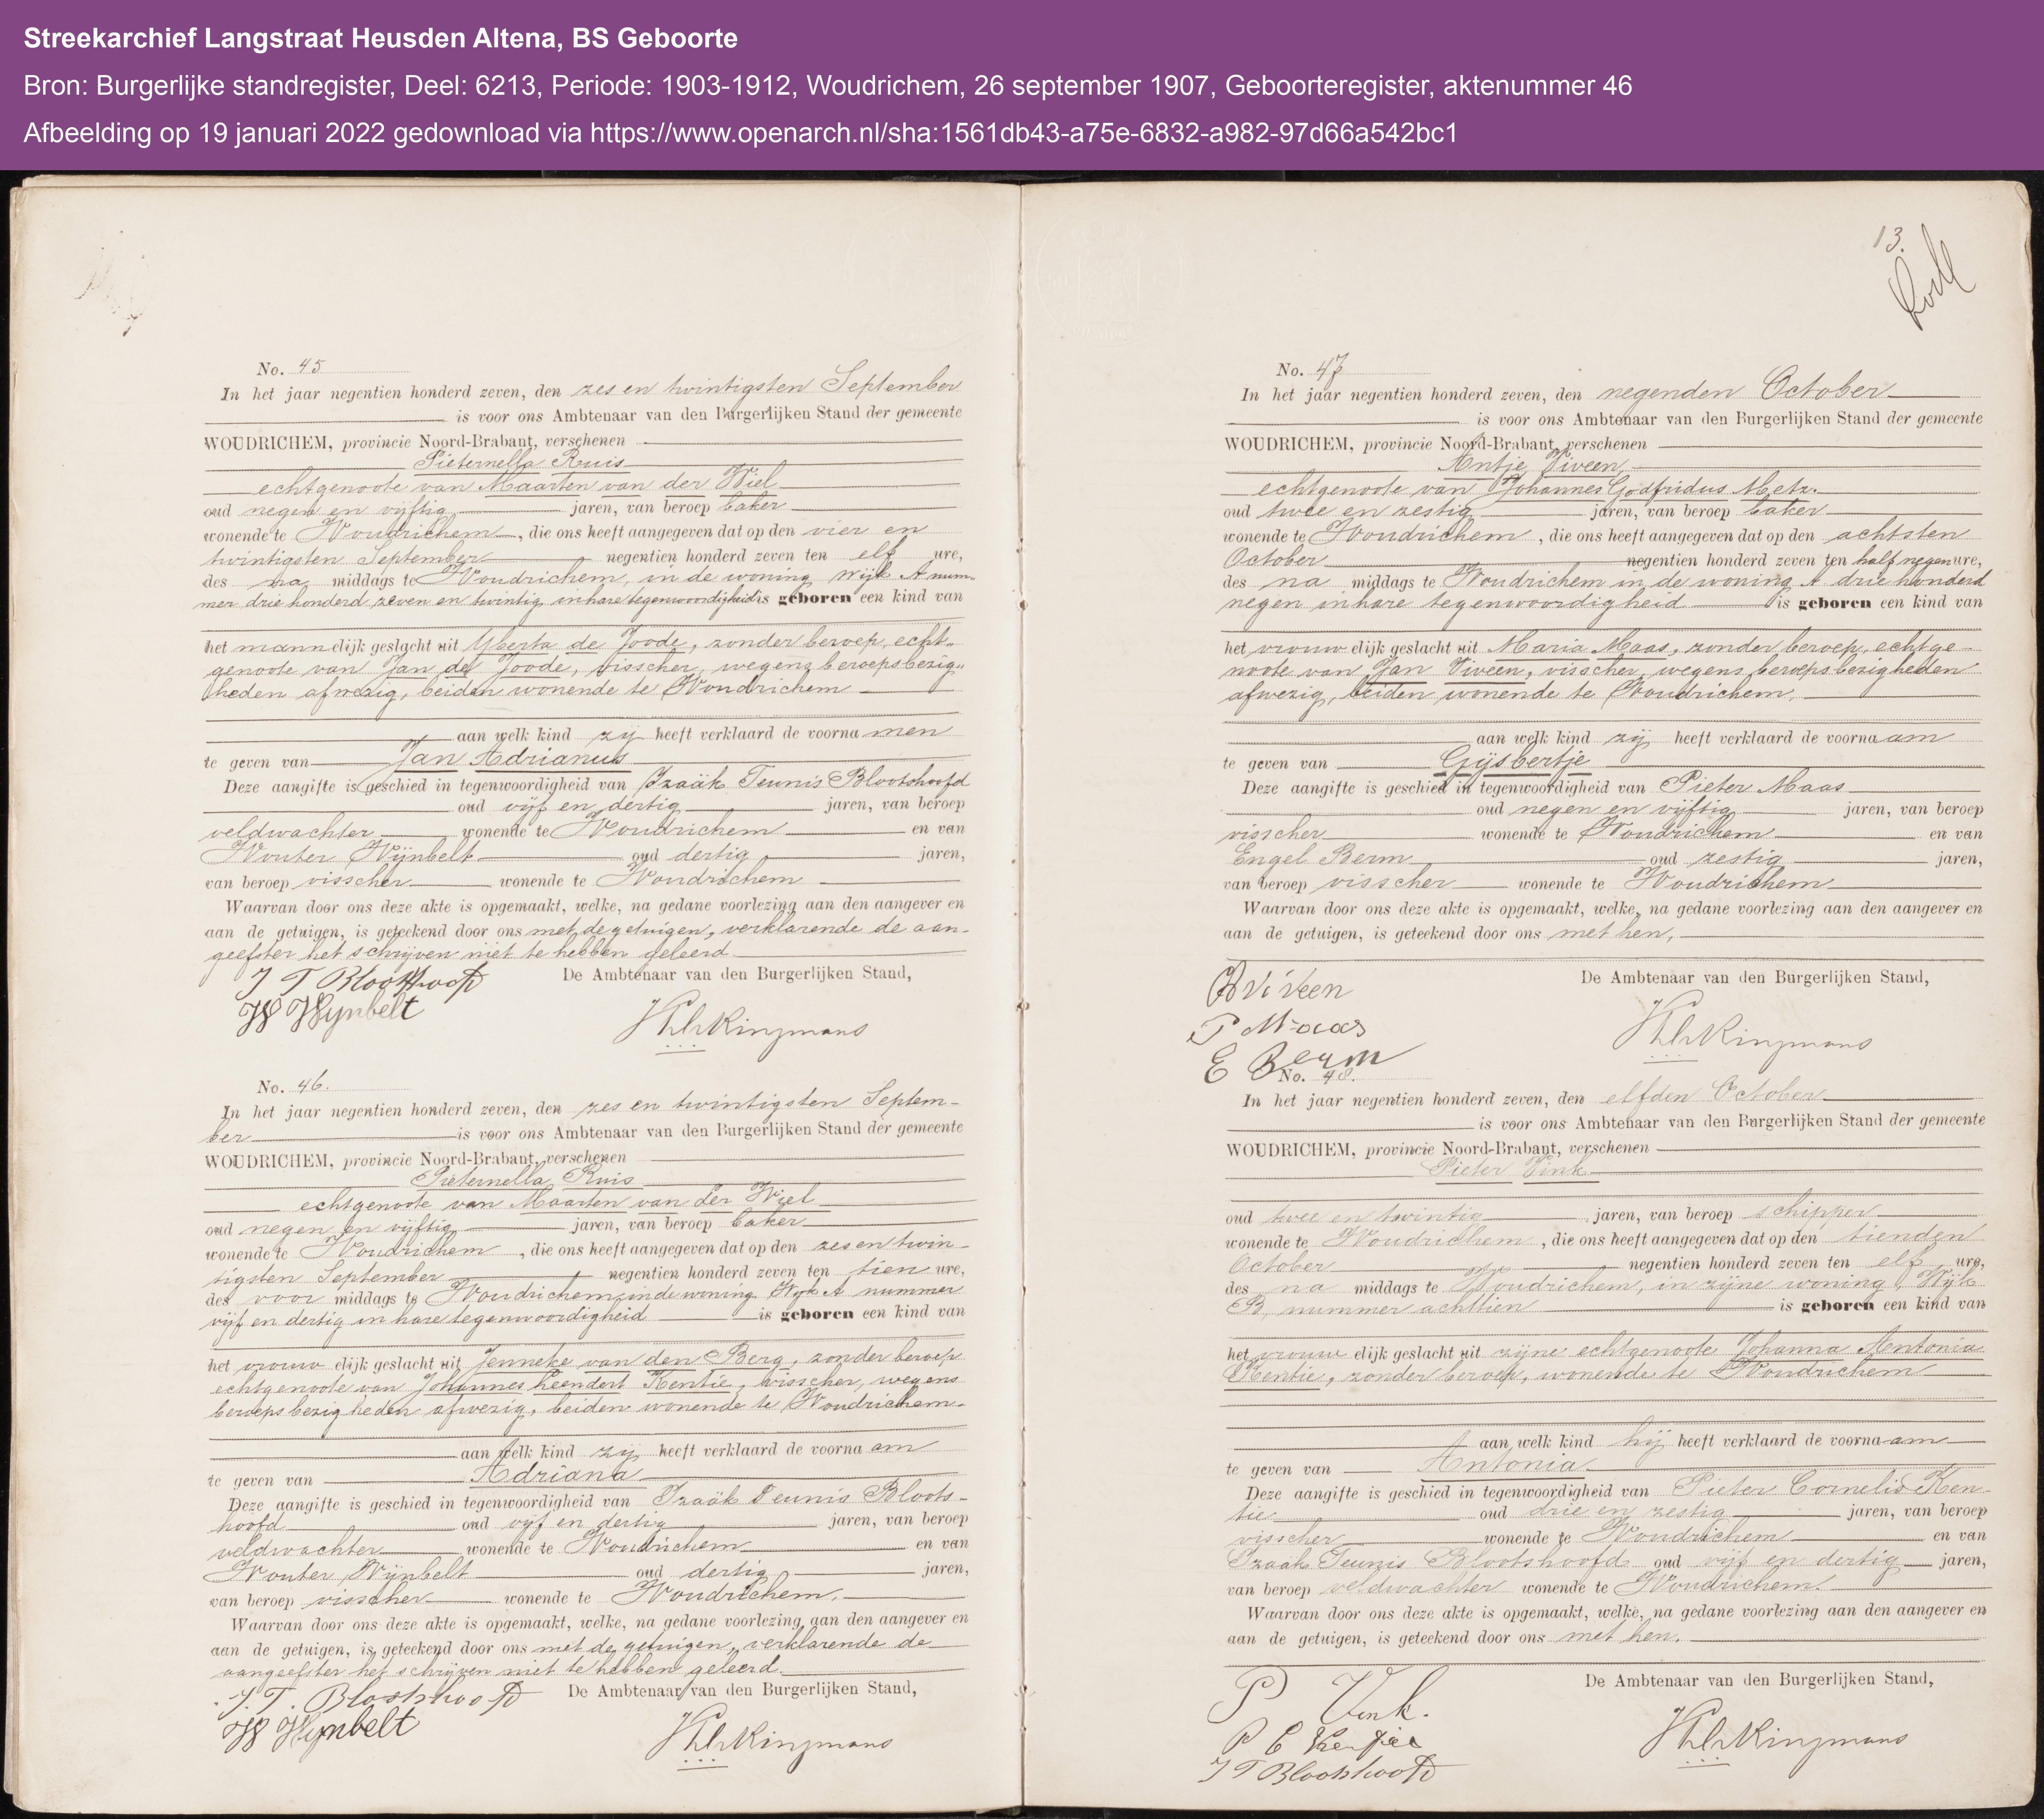 Streekarchief Langstraat Heusden Altena, BS Geboorte
Bron: Burgerlijke standregister, Deel: 6213, Periode: 1903-1912, Woudrichem, 26 september 1907, Geboorteregister, aktenummer 46
Afbeelding op 19 januari 2022 gedownload via https://www.openarch.nl/sha:1561db43-a75e-6832-a982-97d66a542bc1
No. 45
In het jaar negentien honderd zeven, den zes en twintigsten September
is voor ons Ambtenaar van den Burgerlijken Stand der gemeente
WOUDRICHEM, provincie Noord-Brabant, verschenen
Pieternella Ruis
echtgenoote van Maarten van der Wiel
oud negen en vijftig jaren, van beroep baker
wonende te Woudrichem, die ons heeft aangegeven dat op den vier en
twintigsten September negentien honderd zeven ten elf ure,
des na middags te Woudrichem, in de woning wijk A num-
mer drie honderd zeven en twintig in hare tegenwoordigheid is geboren een kind van
het mannelijk geslacht uit Yberta de Joode, zonder beroep, echt-
genoote van Jan de Joode, visscher, wegens beroepsbezig-
heden afwezig, beiden wonende te Woudrichem
aan welk kind zij heeft verklaard de voorna men
te geven van Jan Adrianus
Deze aangifte is geschied in tegenwoordigheid van Izaäk Teunis Blootshoofd
oud vijf en dertig jaren, van beroep
veldwachter wonende te Woudrichem en van
Wouter Wijnbelt oud dertig jaren,
van beroep visscher wonende te Woudrichem
Waarvan door ons deze akte is opgemaakt, welke, na gedane voorlezing aan den aangever en
aan de getuigen, is geteekend door ons met de getuigen, verklarende de aan-
geefster het schrijven niet te hebben geleerd
De Ambtenaar van den Burgerlijken Stand,
I T Blootshoofd
W Wijnbelt
No. 46.
In het jaar negentien honderd zeven, den zes en twintigsten Septem-
ber is voor ons Ambtenaar van den Burgerlijken Stand der gemeente
WOUDRICHEM, provincie Noord-Brabant, verschenen
Pieternella Ruis
echtgenoote van Maarten van der Wiel
oud negen en vijftig jaren, van beroep baker
wonende te Woudrichem, die ons heeft aangegeven dat op den zes en twin-
tigsten September negentien honderd zeven ten tien ure,
des voor middags te Woudrichem, in de woning Wijk A nummer
vijf en dertig in hare tegenwoordigheid is geboren een kind van
het vrouwelijk geslacht uit Jenneke van den Berg, zonder beroep
echtgenoote van Johannes Leendert Kentie, visscher, wegens
beroepsbezigheden afwezig, beiden wonende te Woudrichem.
aan welk kind zij heeft verklaard de voorna am
te geven van Adriana
Deze aangifte is geschied in tegenwoordigheid van Izaäk Teunis Bloots-
hoofd oud vijf en dertig jaren, van beroep
veldwachter wonende te Woudrichem en van
Wouter Wijnbelt oud dertig jaren,
van beroep visscher wonende te Woudrichem.
Waarvan door ons deze akte is opgemaakt, welke, na gedane voorlezing aan den aangever en
aan de getuigen, is geteekend door ons met de getuigen, verklarende de
aangeefster het schrijven niet te hebben geleerd.
De Ambtenaar van den Burgerlijken Stand,
I. T. Blootshoofd
W Wijnbelt
13.
No. 47
In het jaar negentien honderd zeven, den negenden October
is voor ons Ambtenaar van den Burgerlijken Stand der gemeente
WOUDRICHEM, provincie Noord-Brabant, verschenen
Antje Viveen,
echtgenoote van Johannes Godfridus Metz.
oud twee en zestig jaren, van beroep baker
wonende te Woudrichem, die ons heeft aangegeven dat op den achtsten
October negentien honderd zeven ten half negen ure,
des na middags te Woudrichem in de woning A drie honderd
negen in hare tegenwoordigheid is geboren een kind van
het vrouwelijk geslacht uit Maria Maas, zonder beroep, echtge-
noote van Jan Viveen, visscher, wegens beroepsbezigheden
afwezig, beiden wonende te Woudrichem.
aan welk kind zij heeft verklaard de voorna am
te geven van Gijsbertje
Deze aangifte is geschied in tegenwoordigheid van Pieter Maas
oud negen en vijftig jaren, van beroep
visscher wonende te Woudrichem en van
Engel Berm oud zestig jaren,
van beroep visscher wonende te Woudrichem
Waarvan door ons deze akte is opgemaakt, welke, na gedane voorlezing aan den aangever en
aan de getuigen, is geteekend door ons met hen,
De Ambtenaar van den Burgerlijken Stand,
Viveen
P Maas
E Berm
No. 48.
In het jaar negentien honderd zeven, den elfden October
is voor ons Ambtenaar van den Burgerlijken Stand der gemeente
WOUDRICHEM, provincie Noord-Brabant, verschenen
Pieter Vink
oud twee en twintig jaren, van beroep schipper
wonende te Woudrichem, die ons heeft aangegeven dat op den tienden
October negentien honderd zeven ten elf ure,
des na middags te Woudrichem, in zijne woning, Wijk
B, nummer achttien is geboren een kind van
het vrouwelijk geslacht uit zijne echtgenoote Johanna Antonia
Kentie, zonder beroep, wonende te Woudrichem
aan welk kind hij heeft verklaard de voorna am
te geven van Antonia
Deze aangifte is geschied in tegenwoordigheid van Pieter Cornelis Ken-
tie oud drie en zestig jaren, van beroep
visscher wonende te Woudrichem en van
Izaäk Teunis Blootshoofd oud vijf en dertig jaren,
van beroep veldwachter wonende te Woudrichem.
Waarvan door ons deze akte is opgemaakt, welke, na gedane voorlezing aan den aangever en
aan de getuigen, is geteekend door ons met hen.
De Ambtenaar van den Burgerlijken Stand,
P Vink.
P C Kentie
I T Blootshoofd